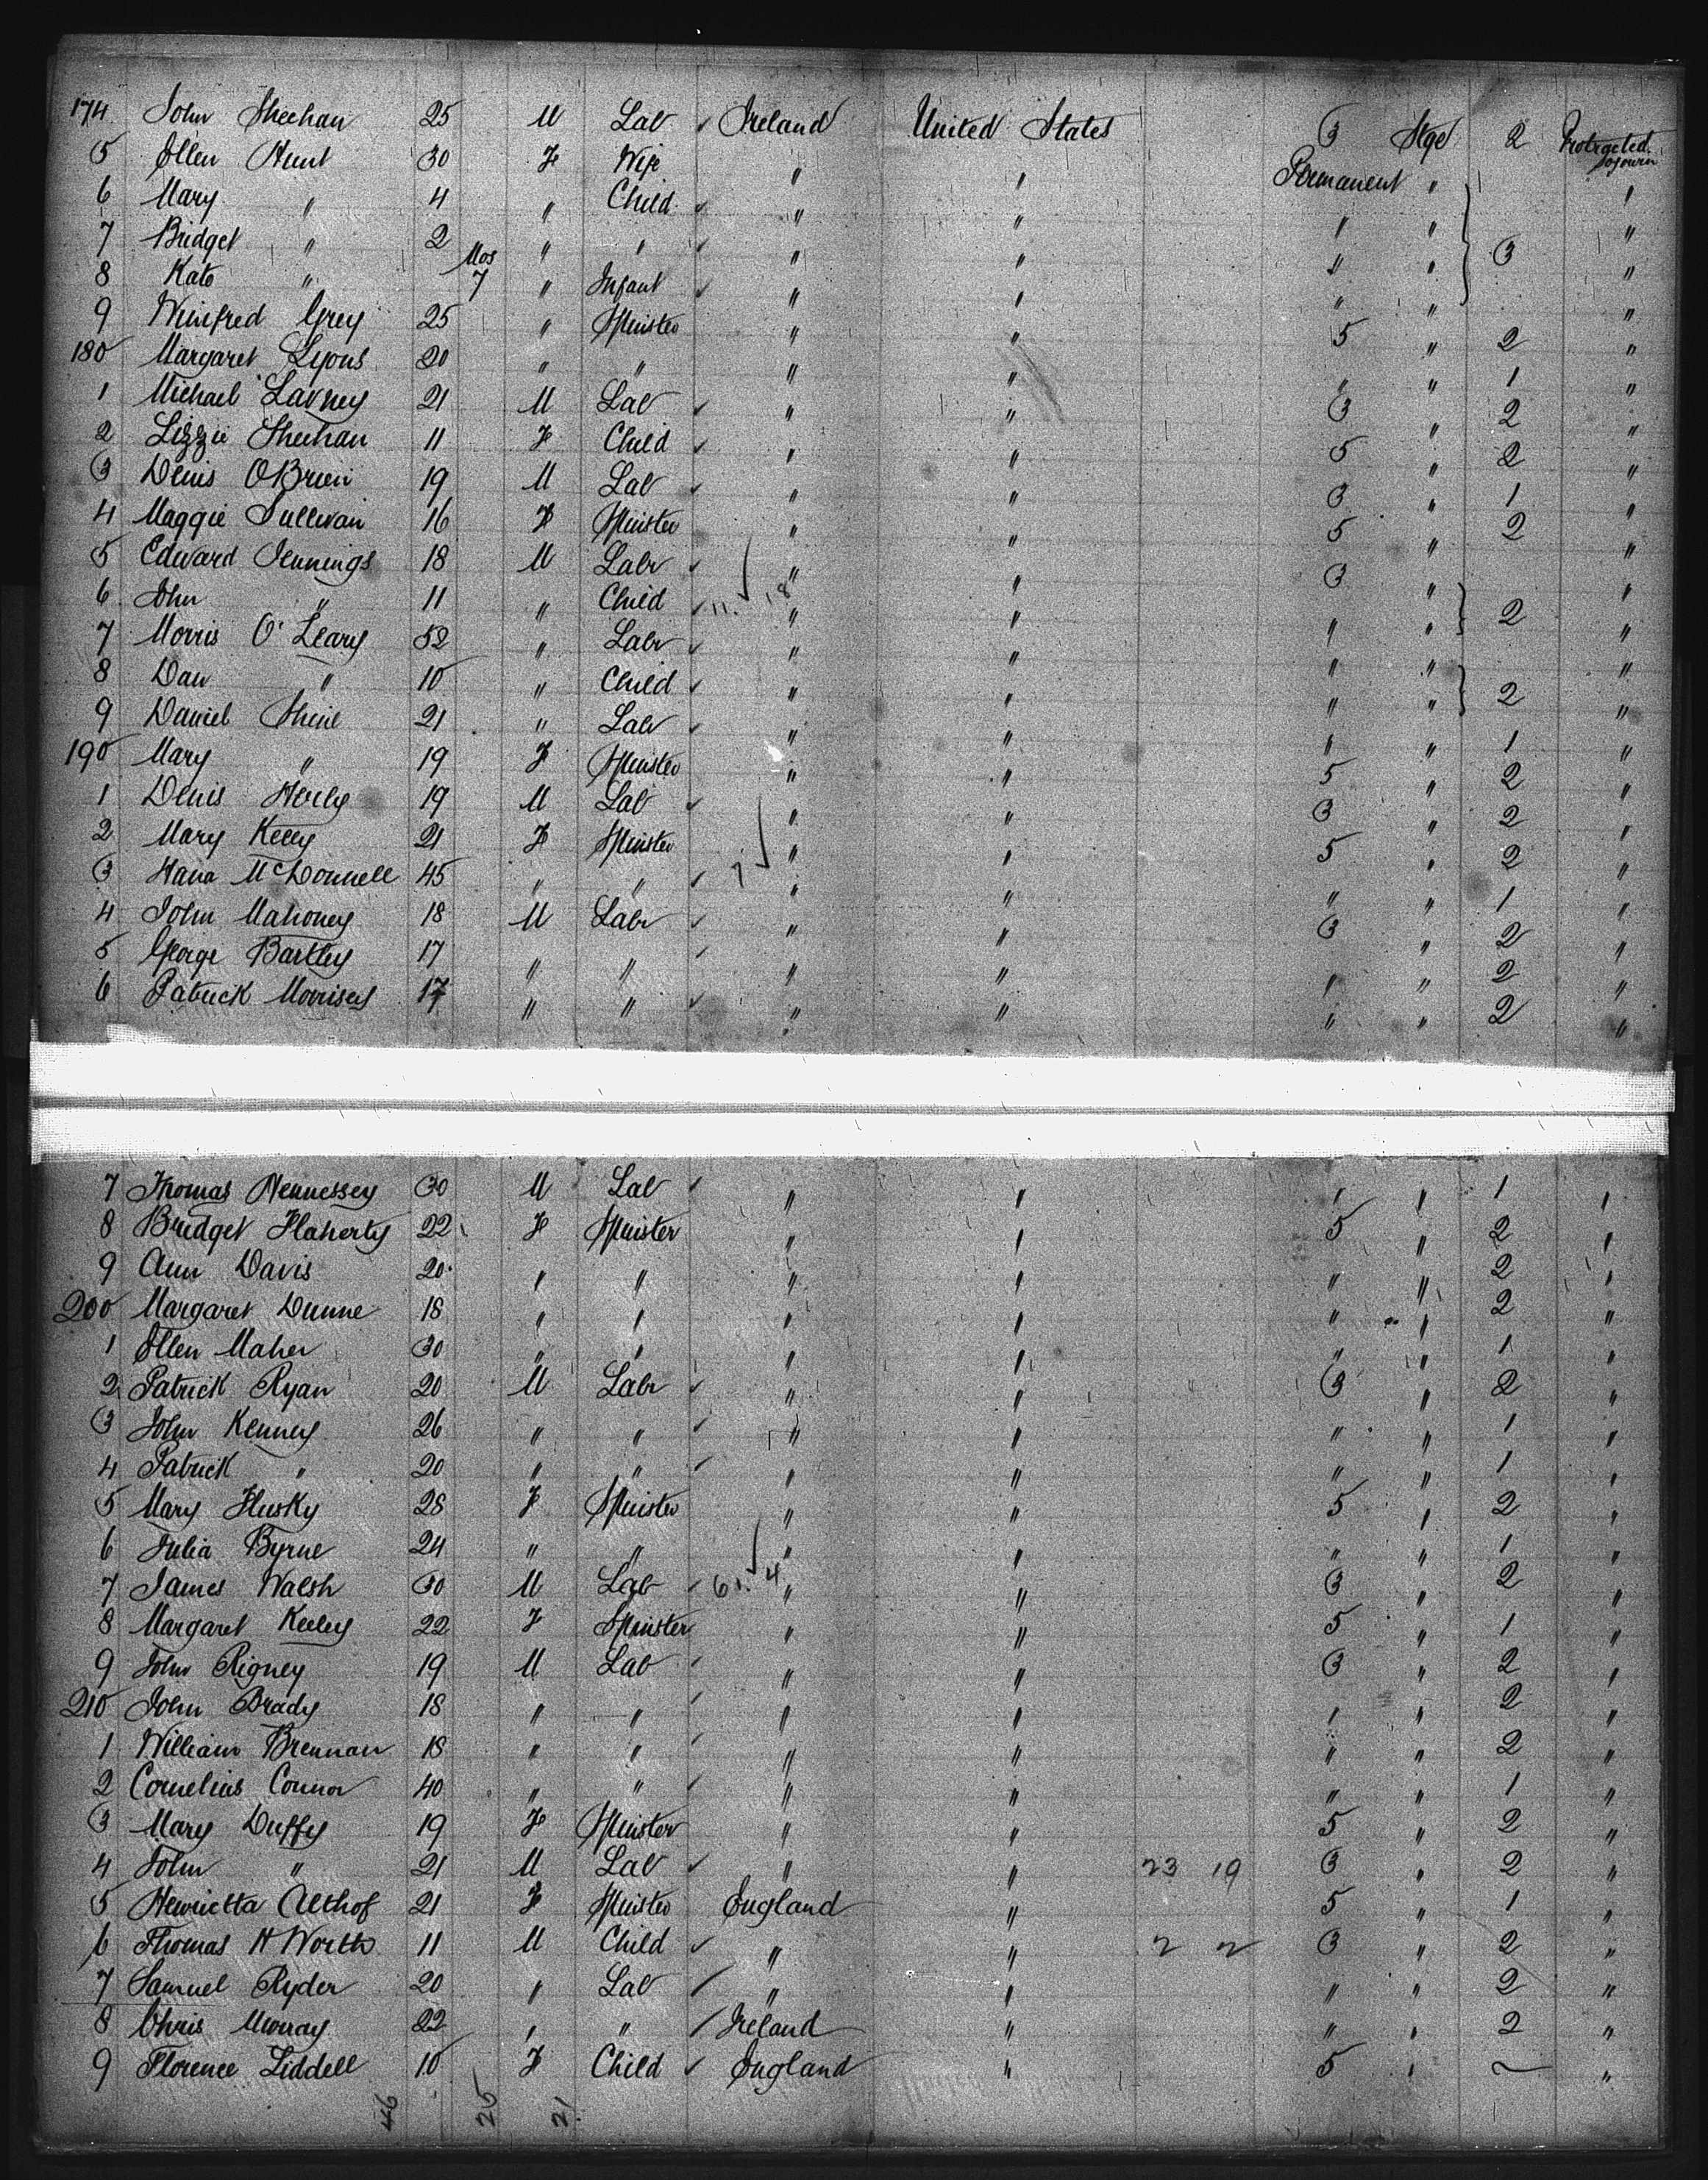 174 John Sheehan 25 M Lab ✓ Ireland United States 3 Stge 2 Protracted Sojourn
5 Ellen Hunt 30 F Wife " " Permanent " "
6 Mary " 4 " Child ✓ " " " " "
7 Bridget " 2 " " ✓ " " " " 3 "
8 Kate " Mos 7 " Infant ✓ " " " " "
9 Winifred Grey 25 " Spinster " " 5 " 2 "
180 Margaret Lyons 20 " " " " " " 1 "
1 Michael Lavney 21 M Lab ✓ " " 3 " 2 "
2 Lizzie Sheehan 11 F Child ✓ " " 5 " 2 "
3 Denis OBrien 19 M Lab ✓ " " 3 " 1 "
4 Maggie Sullivan 16 F Spinster " " 5 " 2 "
5 Edward Jennings 18 M Labr ✓ " " 3 " "
6 John " 11 " Child ✓ 11. ✓ 18 " " " " 2 "
7 Morris O'Leary 52 " Labr ✓ " " " " "
8 Dan " 10 " Child ✓ " " " " 2 "
9 Daniel Shine 21 " Labr ✓ " " " " 1 "
190 Mary " 19 F Spinster " " 5 " 2 "
1 Denis Herly 19 M Lab ✓ " " 3 " 2 "
2 Mary Kelly 21 F Spinster " " 5 " 2 "
3 Hana McDonnell 45 " " ✓ 7 ✓ " " " " 1 "
4 John Mahoney 18 M Labr ✓ " " 3 " 2 "
5 George Bartley 17 " " ✓ " " " " 2 "
6 Patrick Morrisey 17 " " ✓ " " " " 2 "
7 Thomas Hennessey 30 M Lab ✓ " " " " 1 "
8 Bridget Flaherty 22 F Spinster " " 5 " 2 "
9 Ann Davis 20 " " " " " " 2 "
200 Margaret Dunne 18 " " " " " " 2 "
1 Ellen Maher 30 " " " " " " 1 "
2 Patrick Ryan 20 M Labr ✓ " " 3 " 2 "
3 John Kenney 26 " " ✓ " " " " 1 "
4 Patrick " 20 " " ✓ " " " " 1 "
5 Mary Husky 28 F Spinster " " 5 " 2 "
6 Julia Byrne 24 " " " " " " 1 "
7 James Walsh 30 M Lab ✓ 61. ✓ 4 " " 3 " 2 "
8 Margaret Keeley 22 F Spinster " " 5 " 1 "
9 John Rigney 19 M Lab ✓ " " 3 " 2 "
210 John Brady 18 " " ✓ " " " " 2 "
1 William Brennan 18 " " ✓ " " " " 2 "
2 Cornelius Connor 40 " " ✓ " " " " 1 "
3 Mary Duffy 19 F Spinster " " 5 " 2 "
4 John " 21 M Lab ✓ " " 23 19 3 " 2 "
5 Henrietta Althof 21 F Spinster England " 5 " 1 "
6 Thomas H Worth 11 M Child ✓ " " 2 2 3 " 2 "
7 Samuel Ryder 20 " Lab ✓ " " " " 2 "
8 Chris Murray 22 " " ✓ Ireland " " " 2 "
9 Florence Liddell 10 F Child ✓ England " 5 " "
46 25 21.